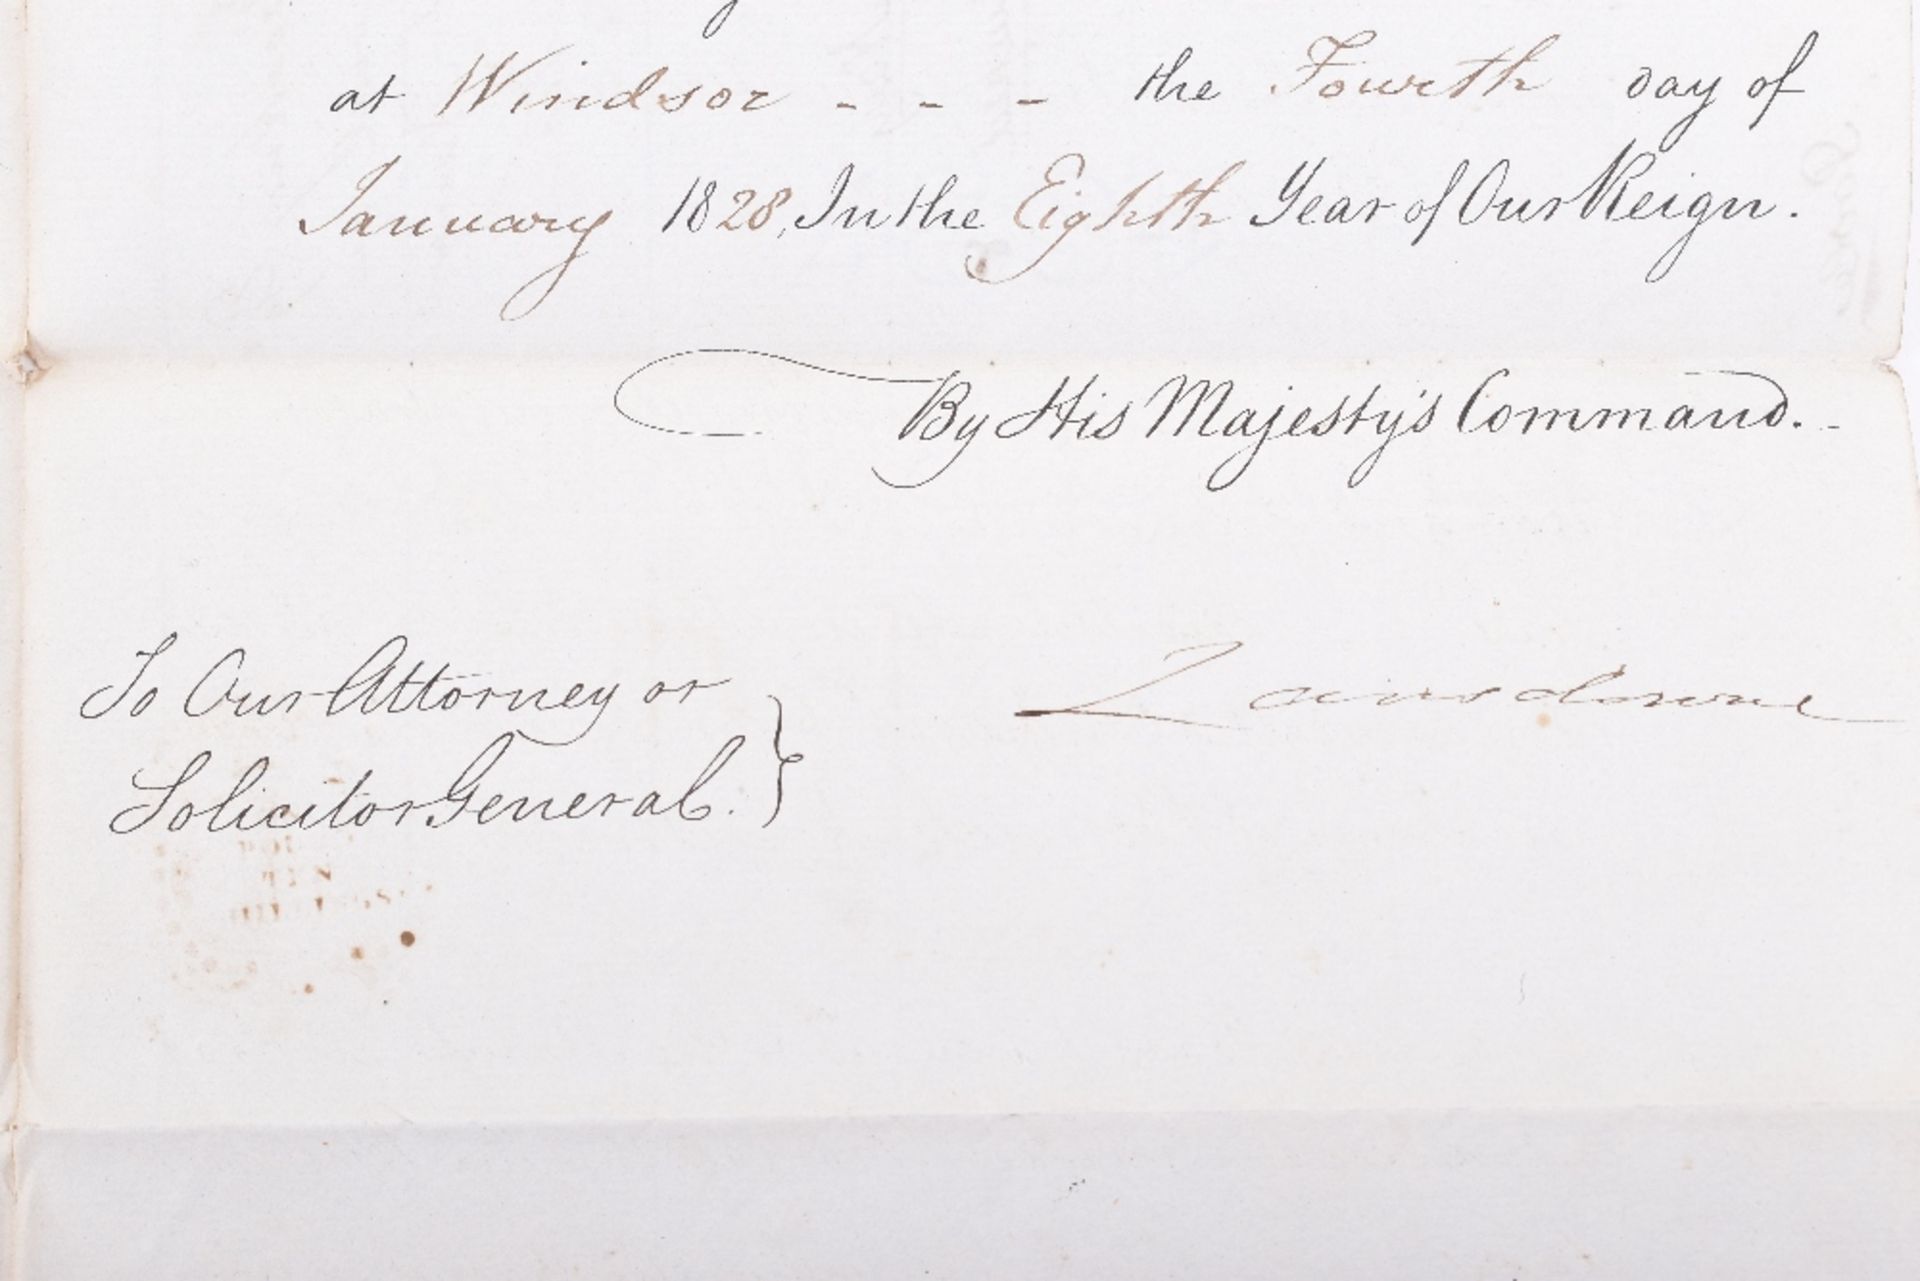 at Windsor - - - the Fourth day of
January 1828, In the Eighth Year of Our Reign.
By His Majesty's Command. -
To Our Attorney or
Solicitor General.
Lansdowne